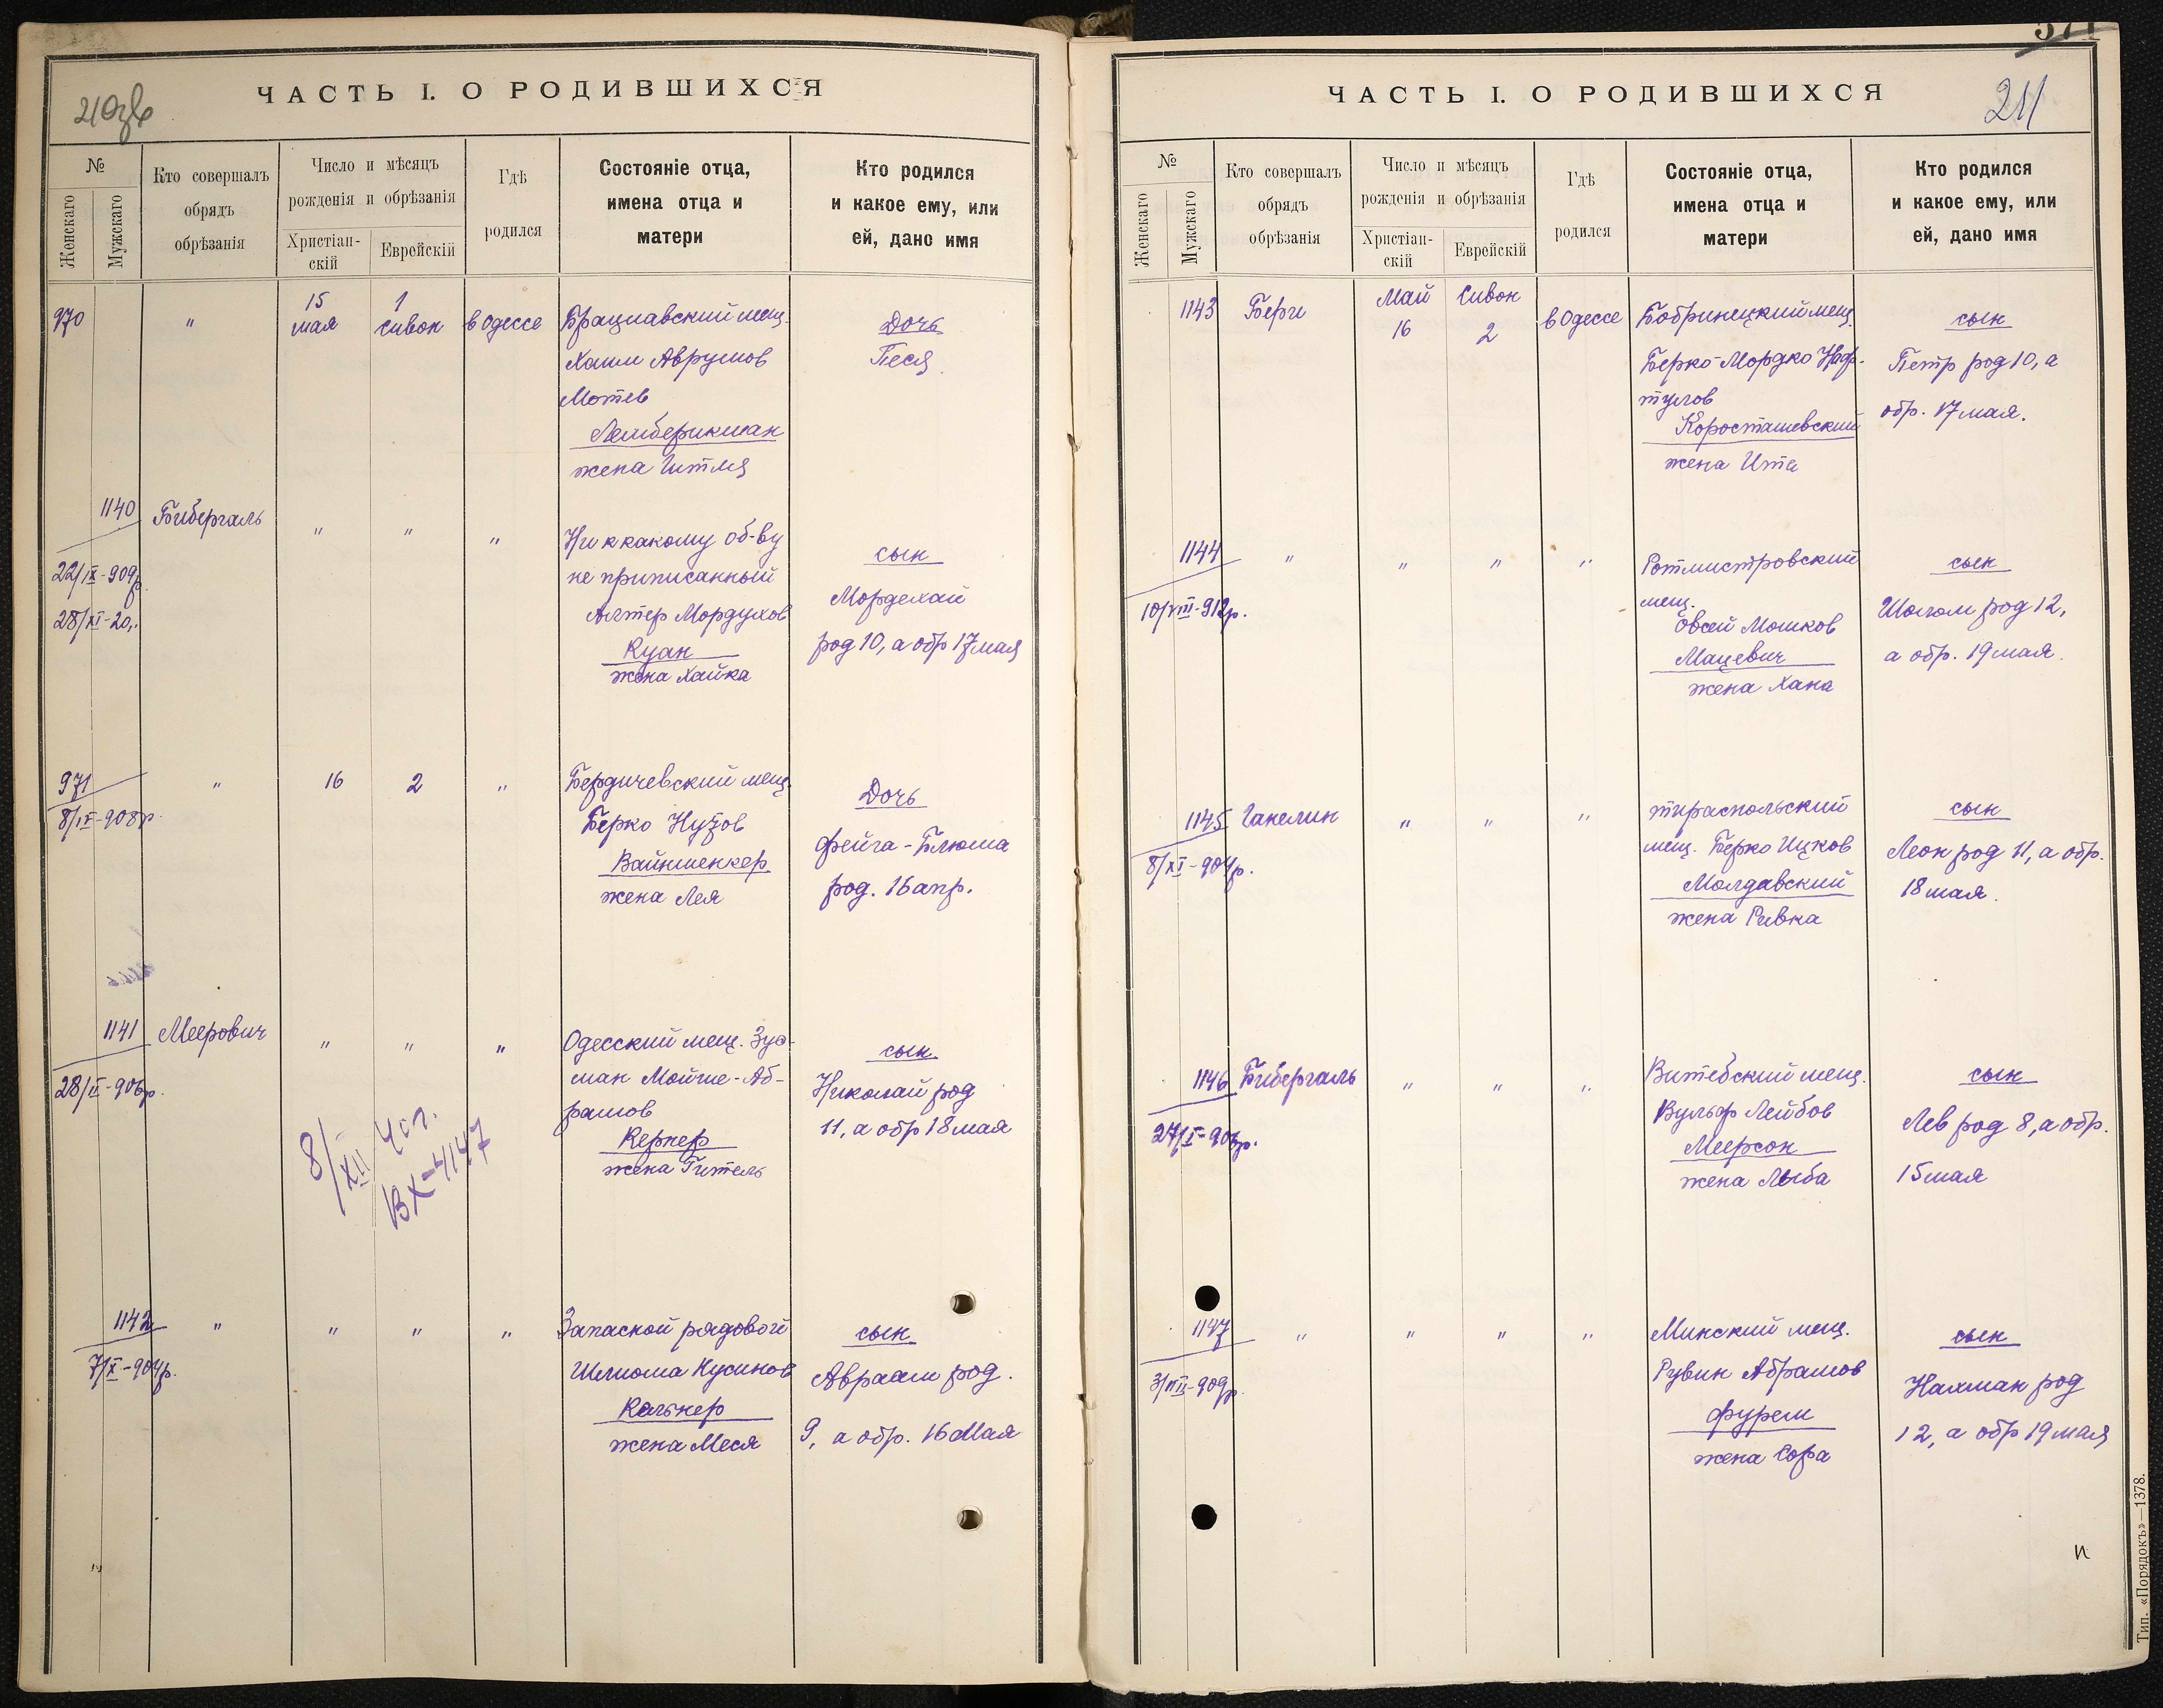 210зв
ЧАСТЬ I. О РОДИВШИХСЯ
№
Женскаго
Мужскаго
Кто совершалъ
обрядъ
обрѣзанія
Число и мѣсяцъ
рожденія и обрѣзанія
Христіан-
скій
Еврейскій
Гдѣ
родился
Состояніе отца,
имена отца и
матери
Кто родился
и какое ему, или
ей, дано имя
970
"
15
мая
1
Сивон
в Одессе
Брацлавский мещ.
Хаим Аврумов
Мотев
Лемберикман
жена Гитля
Дочь
Песя
1140
22/IX-909р.
28/XI-20,.
Бибергаль
"
"
"
Ни к какому об-ву
не приписанный
Алтер Мордухов
Куан
жена Хайка
сын
Мордехай
род 10, а обр 17 мая
971
8/IX-908р.
"
16
2
"
Бердичевский мещ.
Берко Нузов
Вайншенкер
жена Лея
Дочь
Фейга-Блюма
род. 16 апр.
1141
28/II-906р.
Меерович
"
"
"
8/XII 40г.
ВХ-4147
Одесский мещ. Зус-
ман Мойше-Аб-
рамов
Кернер
жена Гитель
сын
Николай род
11, а обр 18 мая
1142
7/X-904р.
"
"
"
"
Запасной рядовой
Шлиома Кусинов
Кельнер
жена Меся
сын
Авраам род.
9, а обр. 16 Мая
371
211
ЧАСТЬ I. О РОДИВШИХСЯ
№
Женскаго
Мужскаго
Кто совершалъ
обрядъ
обрѣзанія
Число и мѣсяцъ
рожденія и обрѣзанія
Христіан-
скій
Еврейскій
Гдѣ
родился
Состояніе отца,
имена отца и
матери
Кто родился
и какое ему, или
ей, дано имя
1143
Берги
Май
16
Сивон
2
в Одессе
Бобринецкий мещ.
Берко-Мордко Наф-
тулов
Коросташевский
жена Ита
сын
Петр род 10, а
обр. 17 мая.
1144
10/VIII-912р.
"
"
"
"
Ротмистровский
мещ.
Овсей Мошков
Мацевич
жена Хана
сын
Шолом род 12,
а обр. 19 мая.
1145
8/XI-904р.
Ганелин
"
"
"
тираспольский
мещ. Берко Ицков
Молдавский
жена Ривка
сын
Леон род 11, а обр.
18 мая.
1146
27/I-906р.
Бибергаль
"
"
"
Витебский мещ.
Вульф Лейбов
Меерсон
жена Лыба
сын
Лев род 8, а обр.
15 мая
1147
3/VIII-909р.
"
"
"
"
Минский мещ.
Рувин Абрамов
Фурем
жена Сора
сын
Нахман род
12, а обр 19 мая
Тип. «Порядокъ»—1378.